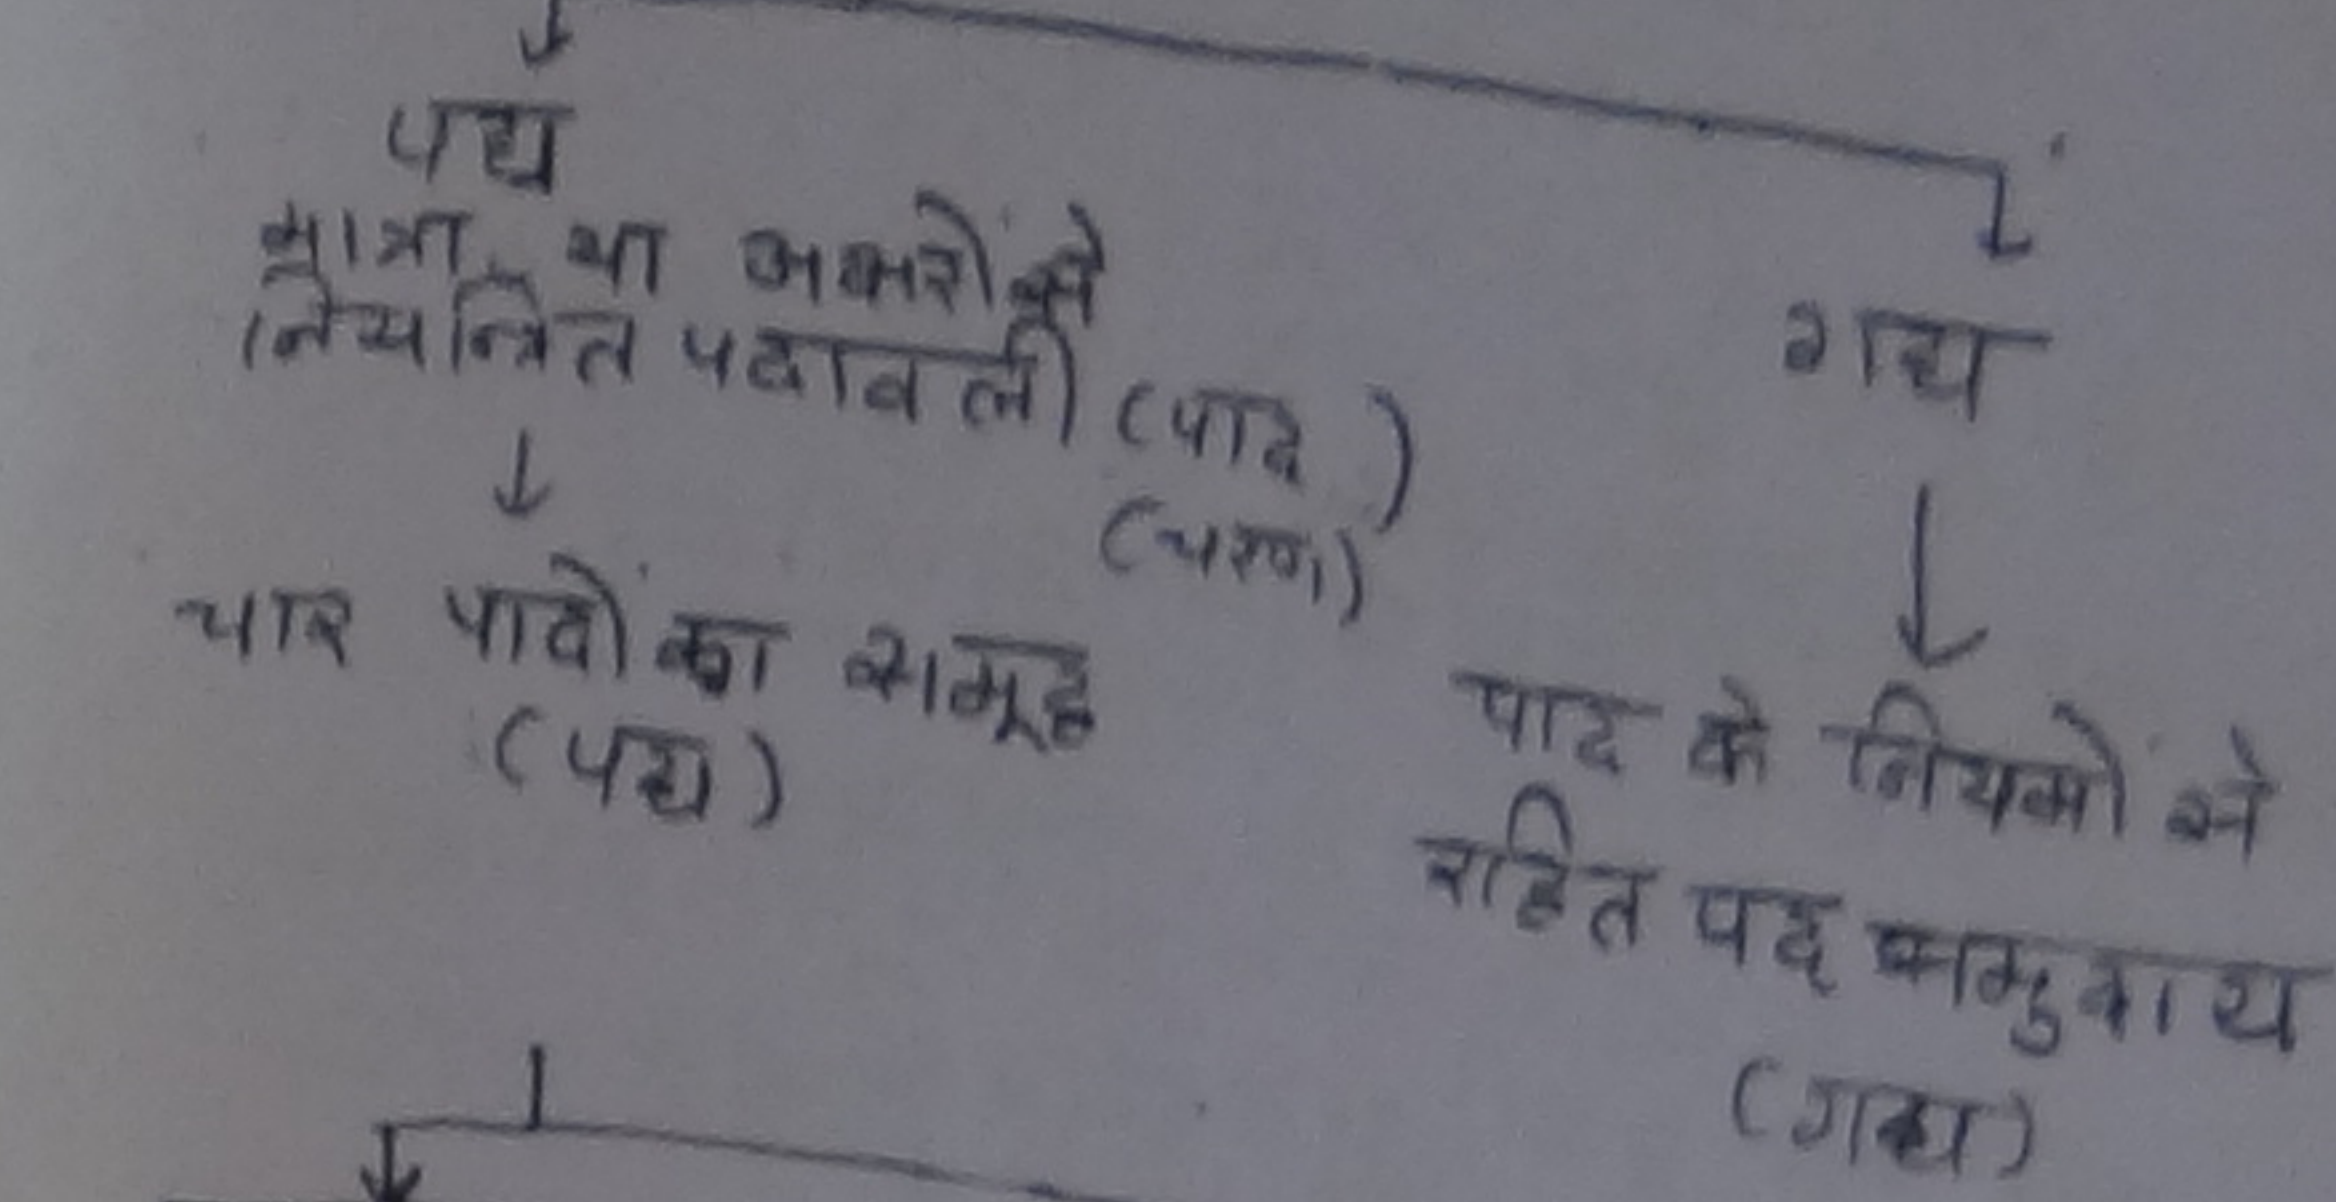 पद्य
मात्रा या अक्षरों से
नियन्त्रित पदावली (पाद)
(चरण)
चार पादों का समूह
(पद्य)
गद्य
पाद के नियमों से
रहित पद समुदाय
(गद्य)